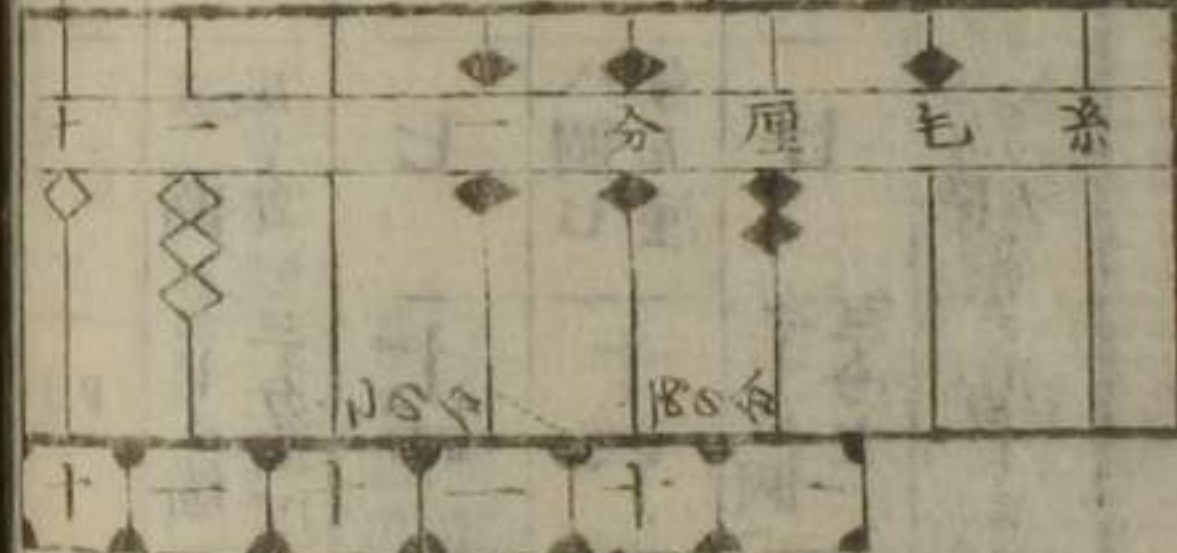 十 一 一 分 厘 毛 糸
十 一 十 一 十 一